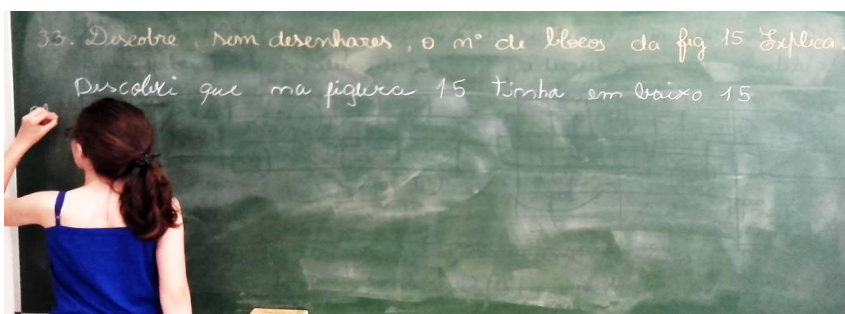 33. Descobre, sem desenhares, o nº de blocos da fig 15 Explica.
Descobri que na figura 15 tinha em baixo 15